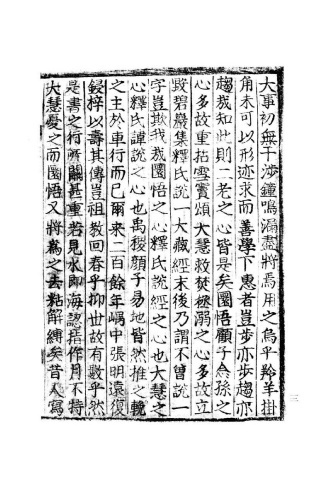 大事初無干涉鐘鳴漏盡將焉用之烏乎羚羊掛
角未可以形迹求而善學下惠者豈步亦步趨亦
趨哉知此則二老之心皆是矣圜悟顧子念孫之
心多故重拈雪竇頌大慧救焚拯溺之心多故立
毀碧巖集釋氏說一大藏經末後乃謂不曾說一
字豈欺我哉圜悟之心釋氏說經之心也大慧之
心釋氏諱說之心也禹稷顏子易地皆然推之輓
之主於車行而已尔來二百餘年嵎中張明遠復
鋟梓以壽其傳豈祖教回春乎抑世故有數乎然
是書之行所關甚重若見水即海認指作月不特
大慧憂之而圜悟又將為之去粘解縛矣昔人寫
三